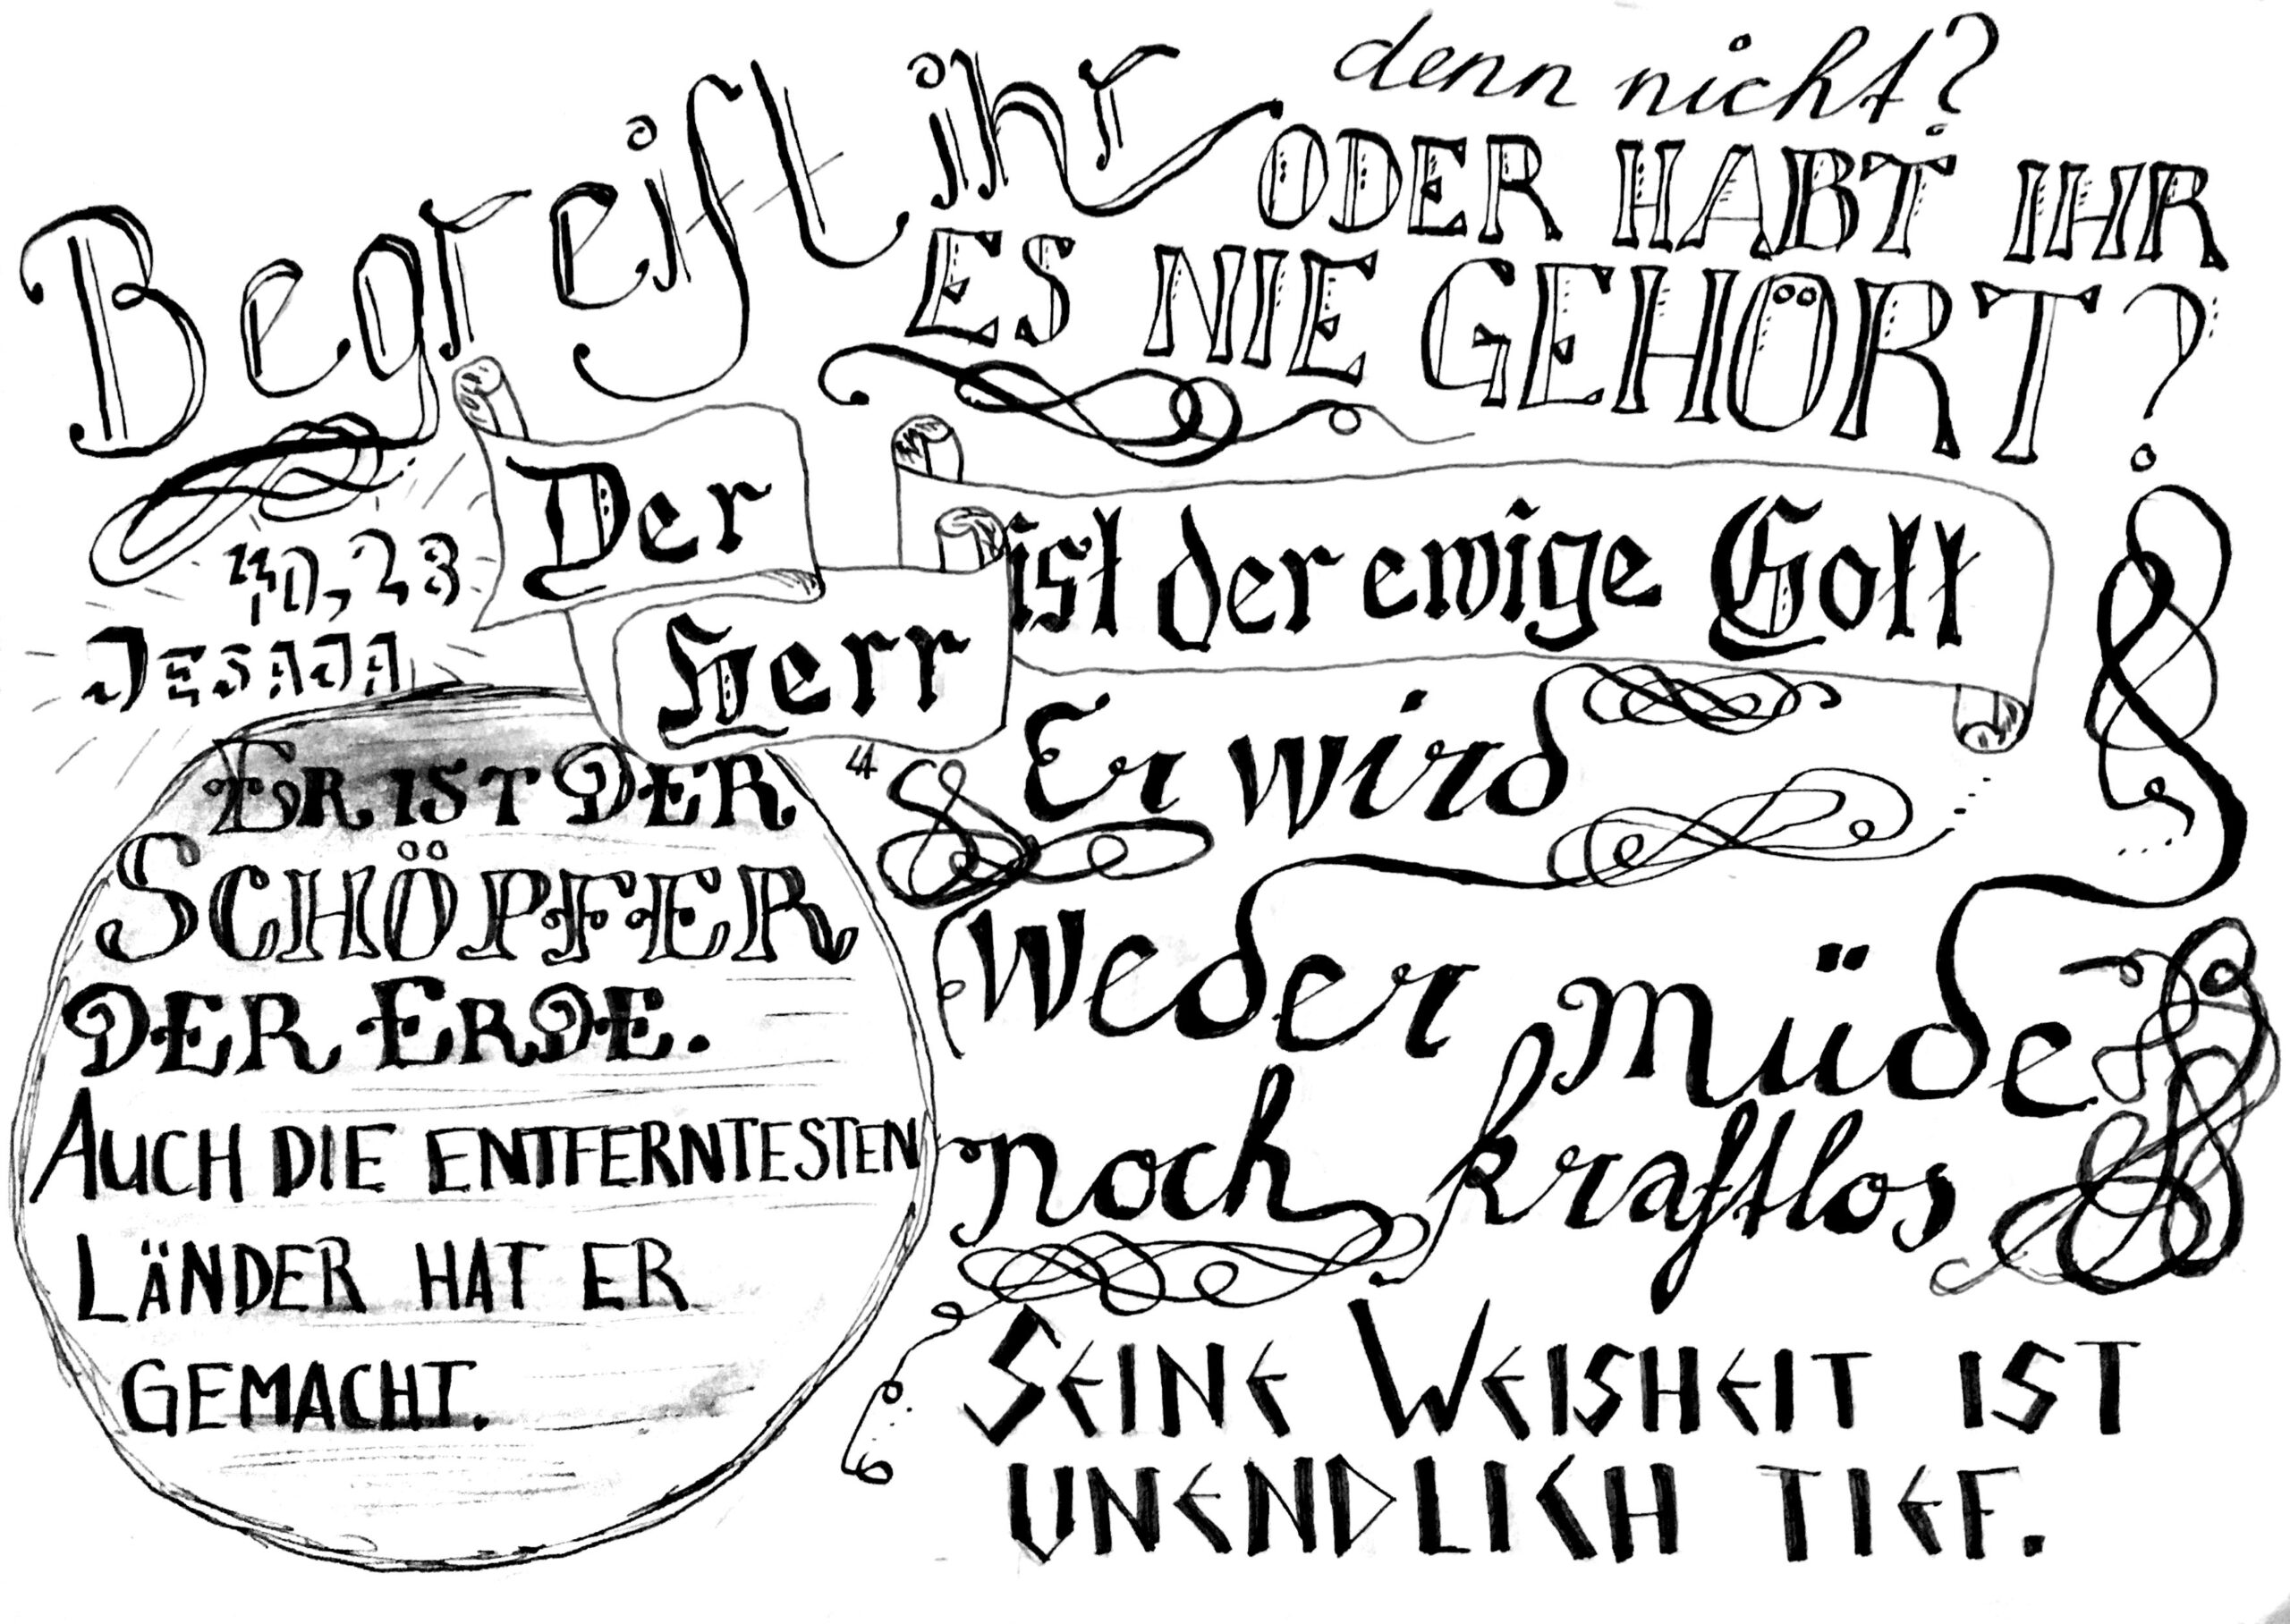 Begreift ihr denn nicht?
ODER HABT IHR
ES NIE GEHÖRT?
Der
Herr
ist der ewige Gott
40,28
JESAJA
ER IST DER
SCHÖPFER
DER ERDE.
AUCH DIE ENTFERNTESTEN
LÄNDER HAT ER
GEMACHT.
Er wird
Weder müde
noch kraftlos
SEINE WEISHEIT IST
UNENDLICH TIEF.